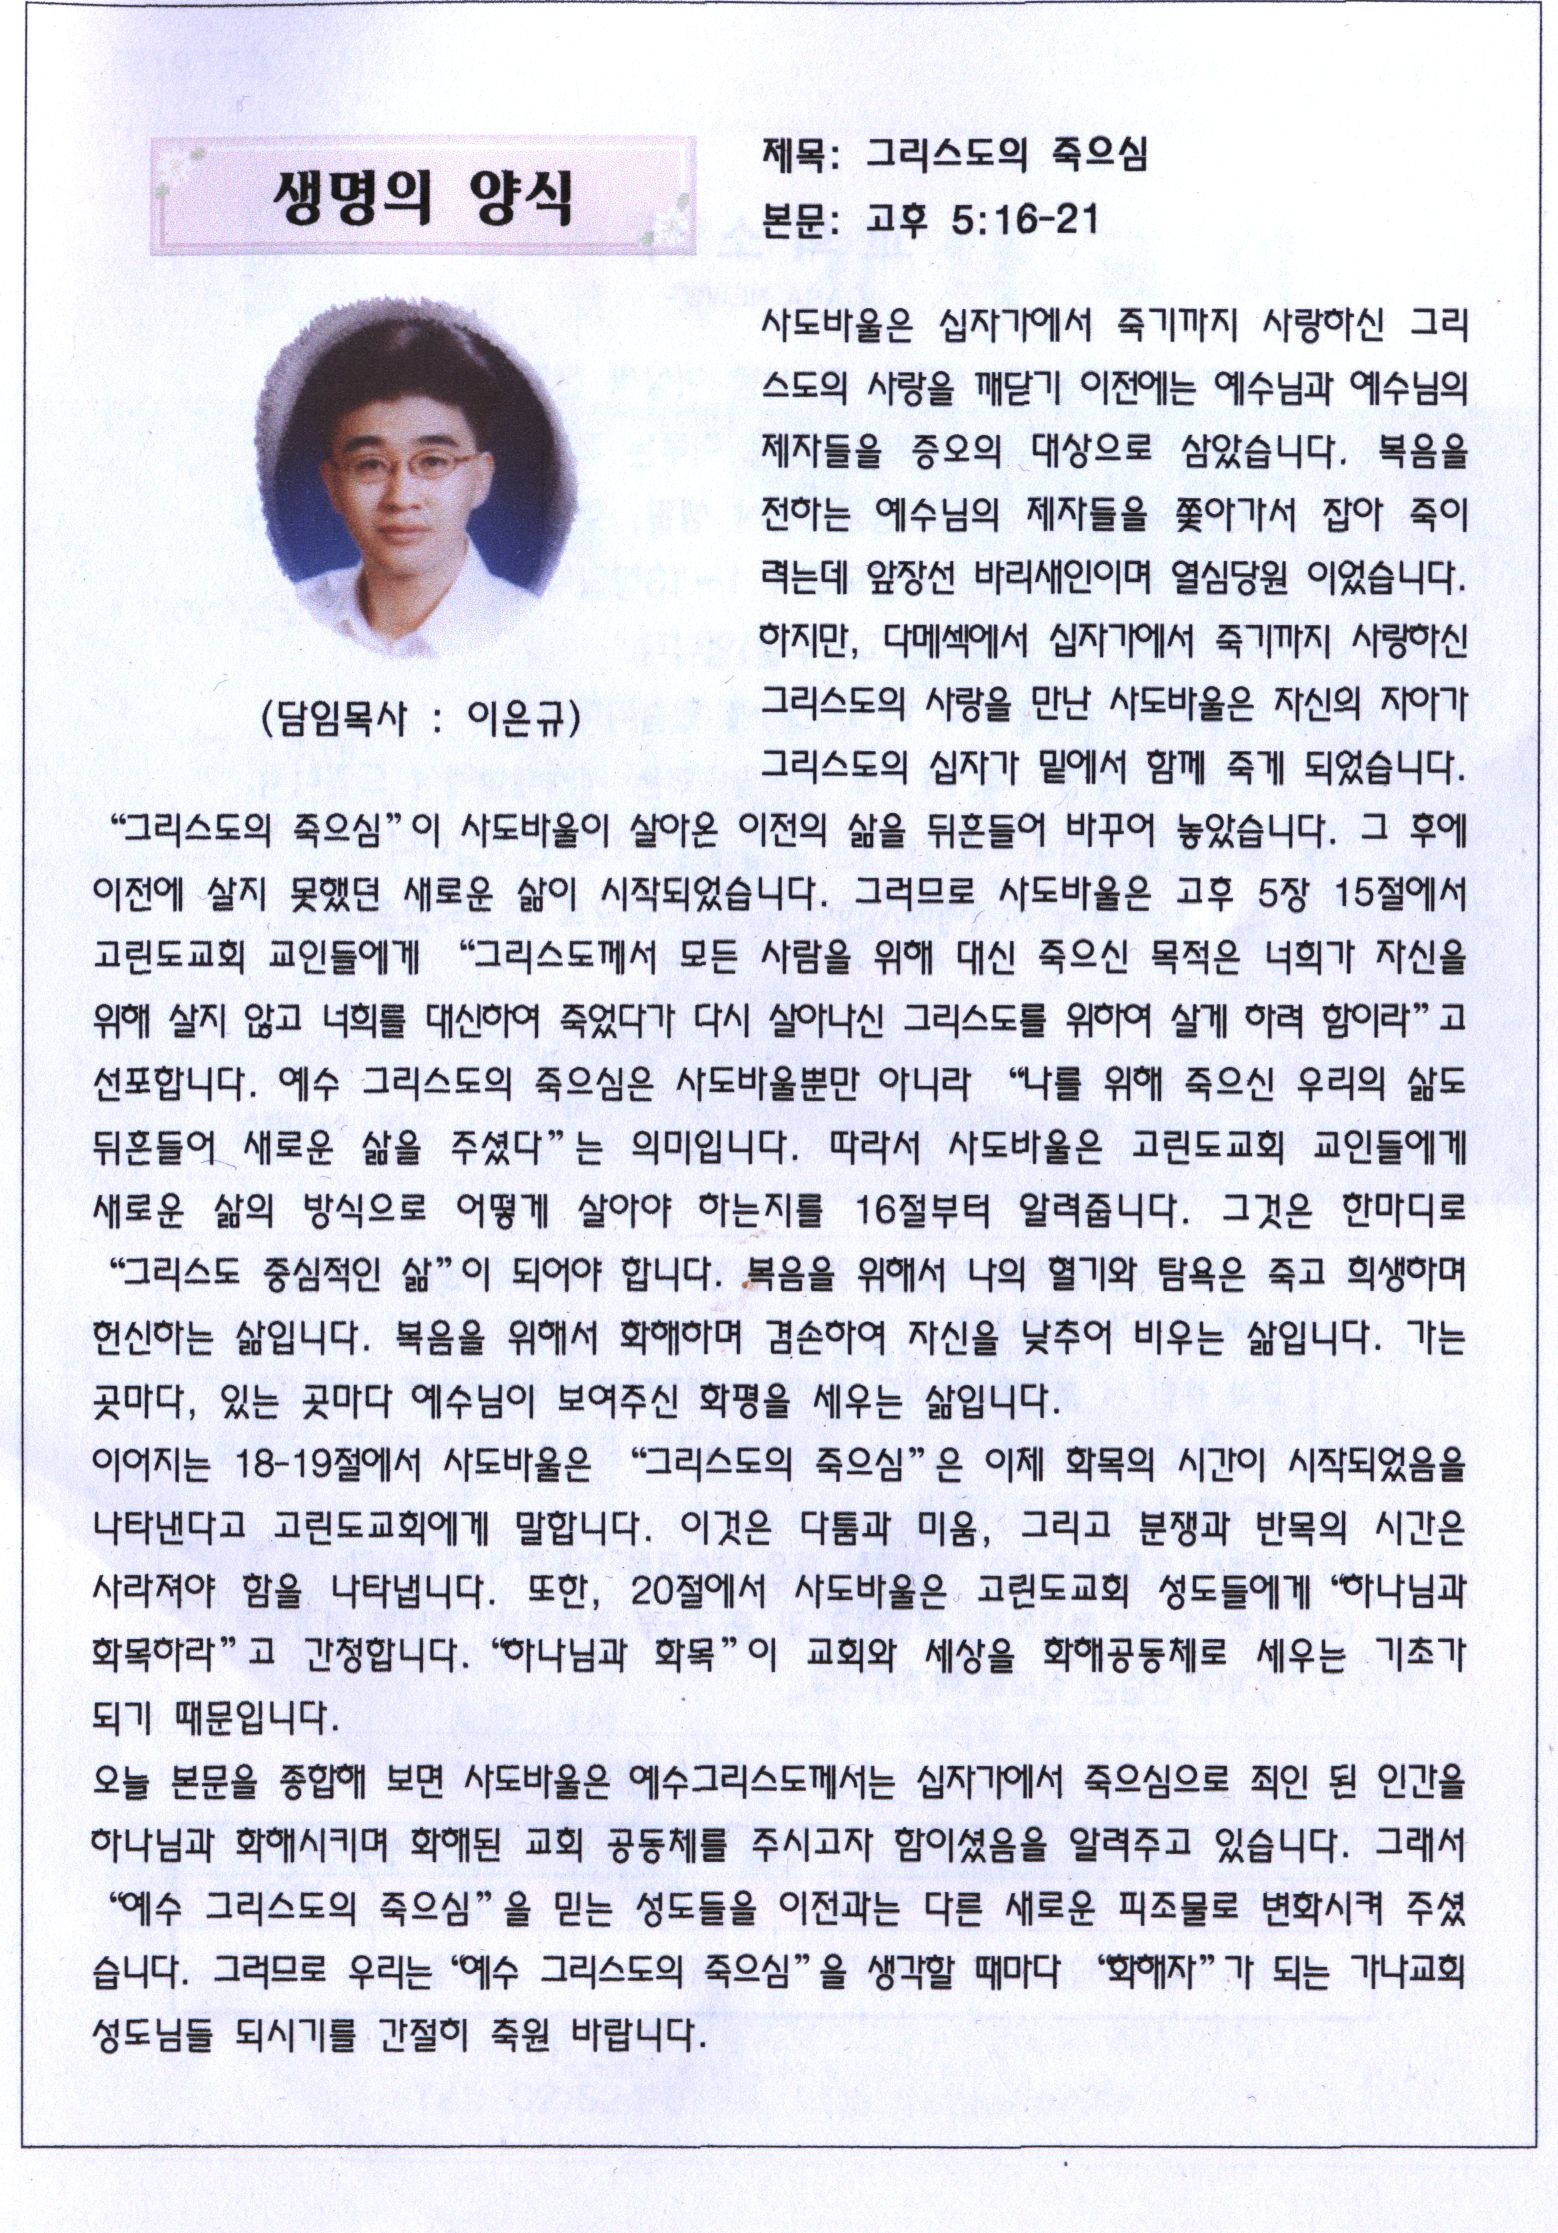 생명의 양식
제목: 그리스도의 죽으심
본문: 고후 5:16-21
(담임목사 : 이은규)
사도바울은 십자가에서 죽기까지 사랑하신 그리
스도의 사랑을 깨닫기 이전에는 예수님과 예수님의
제자들을 증오의 대상으로 삼았습니다. 복음을
전하는 예수님의 제자들을 쫓아가서 잡아 죽이
려는데 앞장선 바리새인이며 열심당원 이었습니다.
하지만, 다메섹에서 십자가에서 죽기까지 사랑하신
그리스도의 사랑을 만난 사도바울은 자신의 자아가
그리스도의 십자가 밑에서 함께 죽게 되었습니다.
“그리스도의 죽으심”이 사도바울이 살아온 이전의 삶을 뒤흔들어 바꾸어 놓았습니다. 그 후에
이전에 살지 못했던 새로운 삶이 시작되었습니다. 그러므로 사도바울은 고후 5장 15절에서
고린도교회 교인들에게 “그리스도께서 모든 사람을 위해 대신 죽으신 목적은 너희가 자신을
위해 살지 않고 너희를 대신하여 죽었다가 다시 살아나신 그리스도를 위하여 살게 하려 함이라”고
선포합니다. 예수 그리스도의 죽으심은 사도바울뿐만 아니라 “나를 위해 죽으신 우리의 삶도
뒤흔들어 새로운 삶을 주셨다”는 의미입니다. 따라서 사도바울은 고린도교회 교인들에게
새로운 삶의 방식으로 어떻게 살아야 하는지를 16절부터 알려줍니다. 그것은 한마디로
“그리스도 중심적인 삶”이 되어야 합니다. 복음을 위해서 나의 혈기와 탐욕은 죽고 희생하며
헌신하는 삶입니다. 복음을 위해서 화해하며 겸손하여 자신을 낮추어 비우는 삶입니다. 가는
곳마다, 있는 곳마다 예수님이 보여주신 화평을 세우는 삶입니다.
이어지는 18-19절에서 사도바울은 “그리스도의 죽으심”은 이제 화목의 시간이 시작되었음을
나타낸다고 고린도교회에게 말합니다. 이것은 다툼과 미움, 그리고 분쟁과 반목의 시간은
사라져야 함을 나타냅니다. 또한, 20절에서 사도바울은 고린도교회 성도들에게 “하나님과
화목하라”고 간청합니다. “하나님과 화목”이 교회와 세상을 화해공동체로 세우는 기초가
되기 때문입니다.
오늘 본문을 종합해 보면 사도바울은 예수그리스도께서는 십자가에서 죽으심으로 죄인 된 인간을
하나님과 화해시키며 화해된 교회 공동체를 주시고자 함이셨음을 알려주고 있습니다. 그래서
“예수 그리스도의 죽으심”을 믿는 성도들을 이전과는 다른 새로운 피조물로 변화시켜 주셨
습니다. 그러므로 우리는 “예수 그리스도의 죽으심”을 생각할 때마다 “화해자”가 되는 가나교회
성도님들 되시기를 간절히 축원 바랍니다.